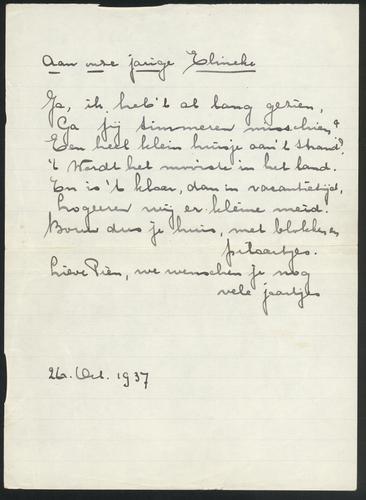 Aan onze jarige Elineke
Ja, ik heb't al lang gezien,
Ga jij timmeren misschien,
Een heel klein huisje aan't strand?
't Wordt het mooiste in het land.
En is 't klaar, dan in vacantietijd,
Logeeren wij er kleine meid.
Bouw dus je huis, met blokken en
pilaartjes.
Lieve Pien, we wenschen je nog
vele jaartjes
26. Oct. 1937